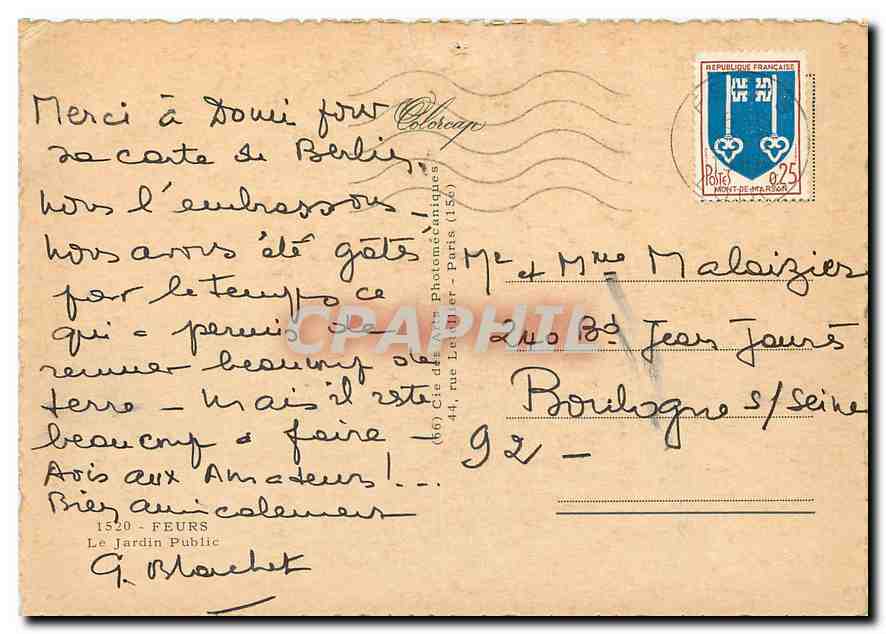 Merci à Domi pour
sa carte de Berlin,
nous l'embrassons -
nous avons été gâtés
par le temps ce
qui a permis de
remuer beaucoup de
terre - mais il reste
beaucoup à faire -
Avis aux Amateurs!...
Bien amicalement
1520 - FEURS
Le Jardin Public
G. Blachet
Colorcap
(66) Cie des Arts Photomécaniques
44, rue Letellier - Paris (15e)
REPUBLIQUE FRANÇAISE
POSTES
0,25
MONT-DE-MARSAN
Mr et Mme Malaizier
240 Bd Jean Jaurès
Boulogne s/Seine
92 -
CPAPHIL